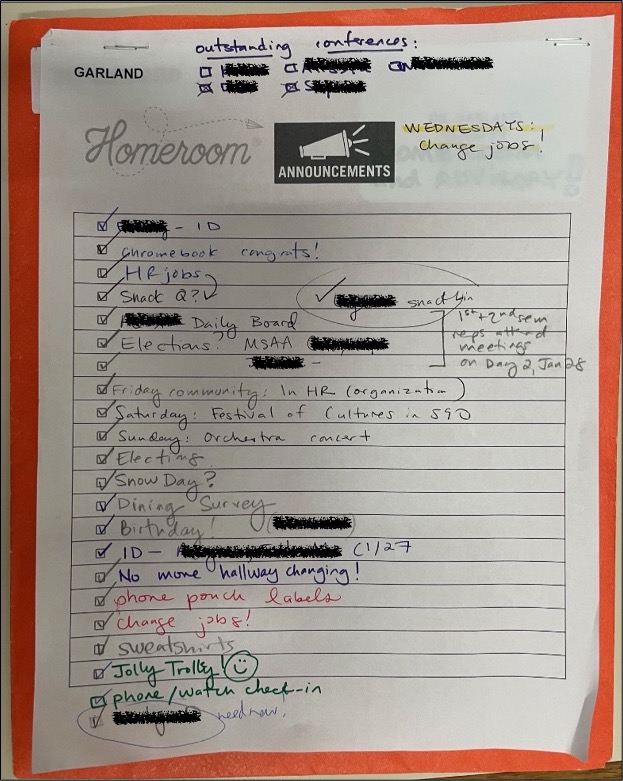 outstanding conferences:
GARLAND
Homeroom
ANNOUNCEMENTS
WEDNESDAYS:
change jobs!
- ID
Chromebook congrats!
HR jobs
Snack Q?
snack bin
Daily Board
Elections? MSAA
1st + 2nd sem
reps attend
meetings
on Day 2, Jan 28
-
Friday community: In HR (organization)
Saturday: Festival of Cultures in 590
Sunday: Orchestra concert
Electing
Snow Day?
Dining Survey
Birthday! ( )
ID - (1/27
No more hallway changing!
phone pouch labels
change jobs!
sweatshirts
Jolly Trolly!
phone/watch check-in
need now!